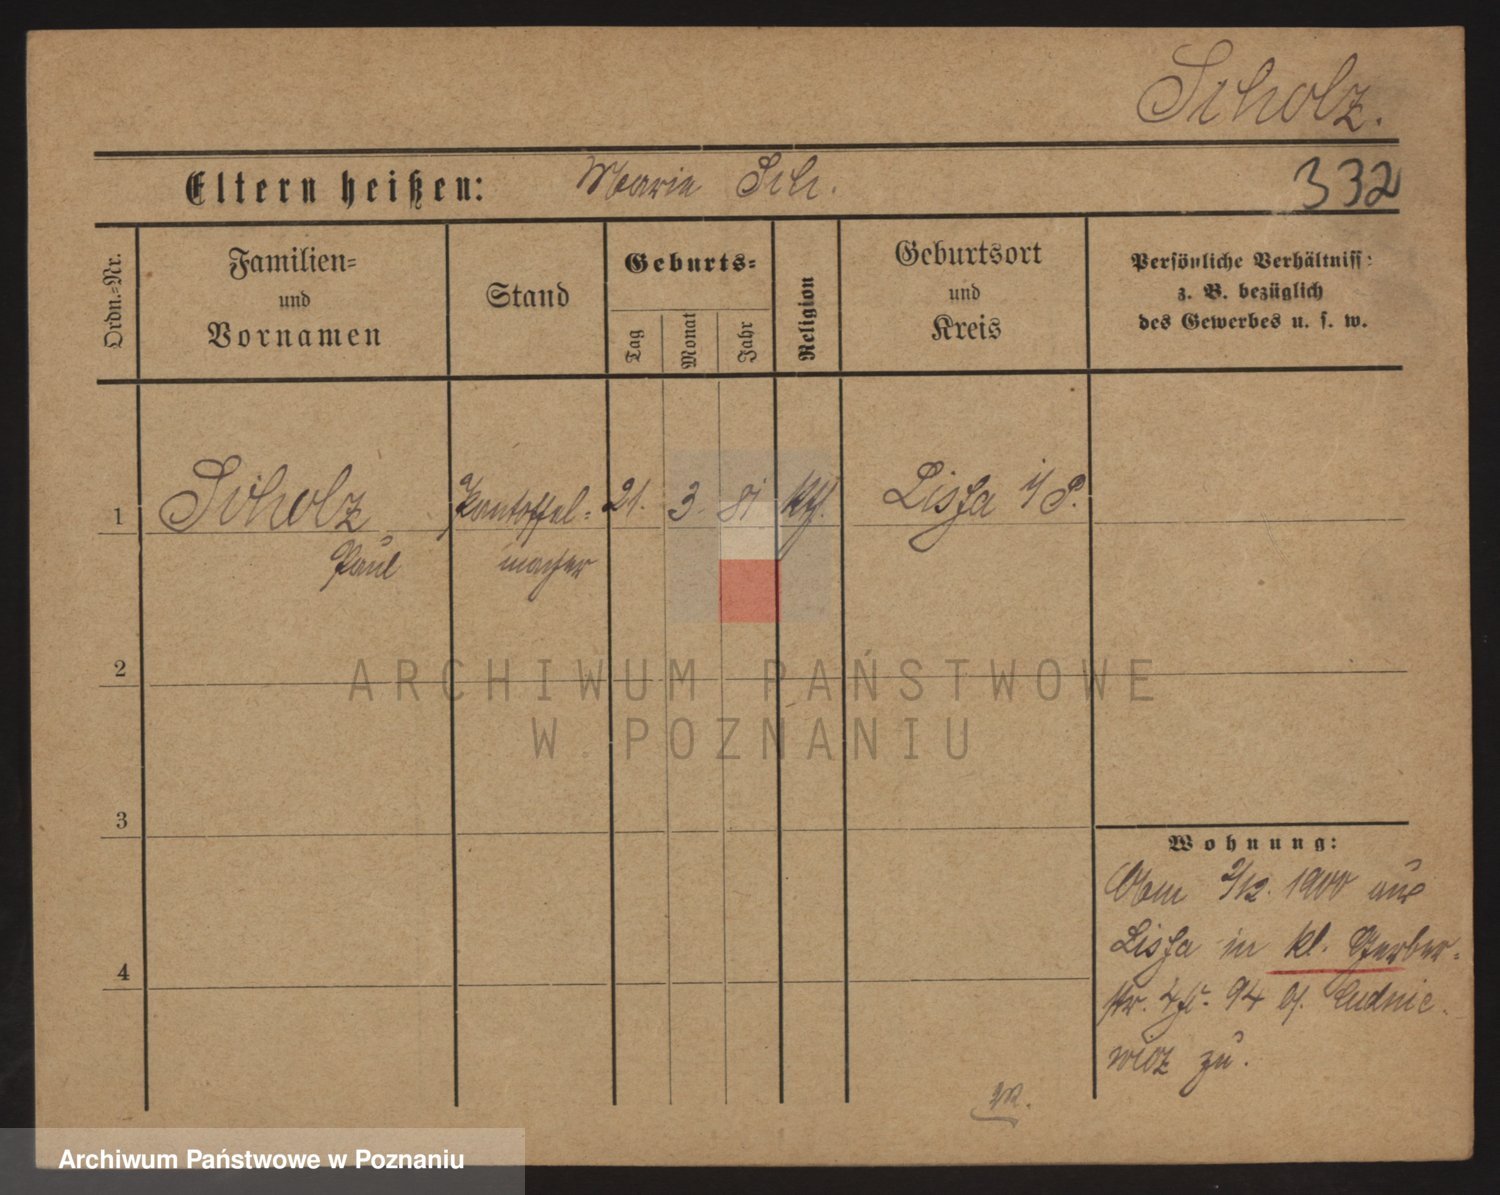 Scholz.
Eltern heißen: Marie Sch.
332
Ordn.=Nr.
Familien=
und
Vornamen
Stand
Geburts=
Tag
Monat
Jahr
Religion
Geburtsort
und
Kreis
Persönliche Verhältniss:
z. B. bezüglich
des Gewerbes u. s. w.
1
Scholz
Paul
Pantoffel=
macher
21. 3. 81
kth.
Lissa i/P.
2
ARCHIWUM PAŃSTWOWE
W POZNANIU
3
4
Wohnung:
2/12. 1900 aus
Lissa in kl. Gerber=
str. 94 b/. Ludnie
wicz zu.
Archiwum Państwowe w Poznaniu